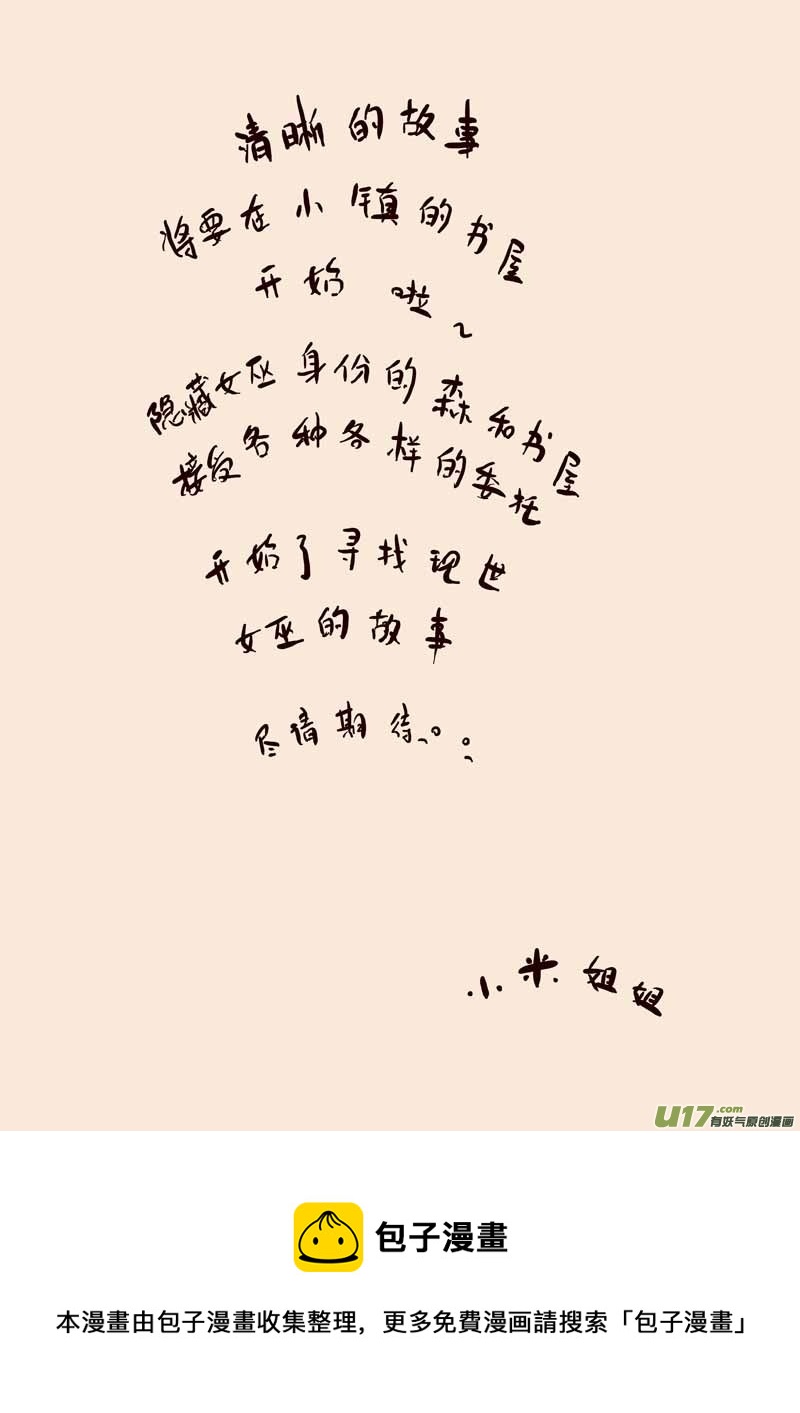 清晰的故事
将要在小镇的书屋
开始 啦~
隐藏女巫身份的森和书屋
接受各种各样的委托
开始了寻找现世
女巫的故事
尽请期待。。
小米姐姐
U17.com
有妖气原创漫画
包子漫畫
本漫畫由包子漫畫收集整理，更多免費漫画請搜索「包子漫畫」